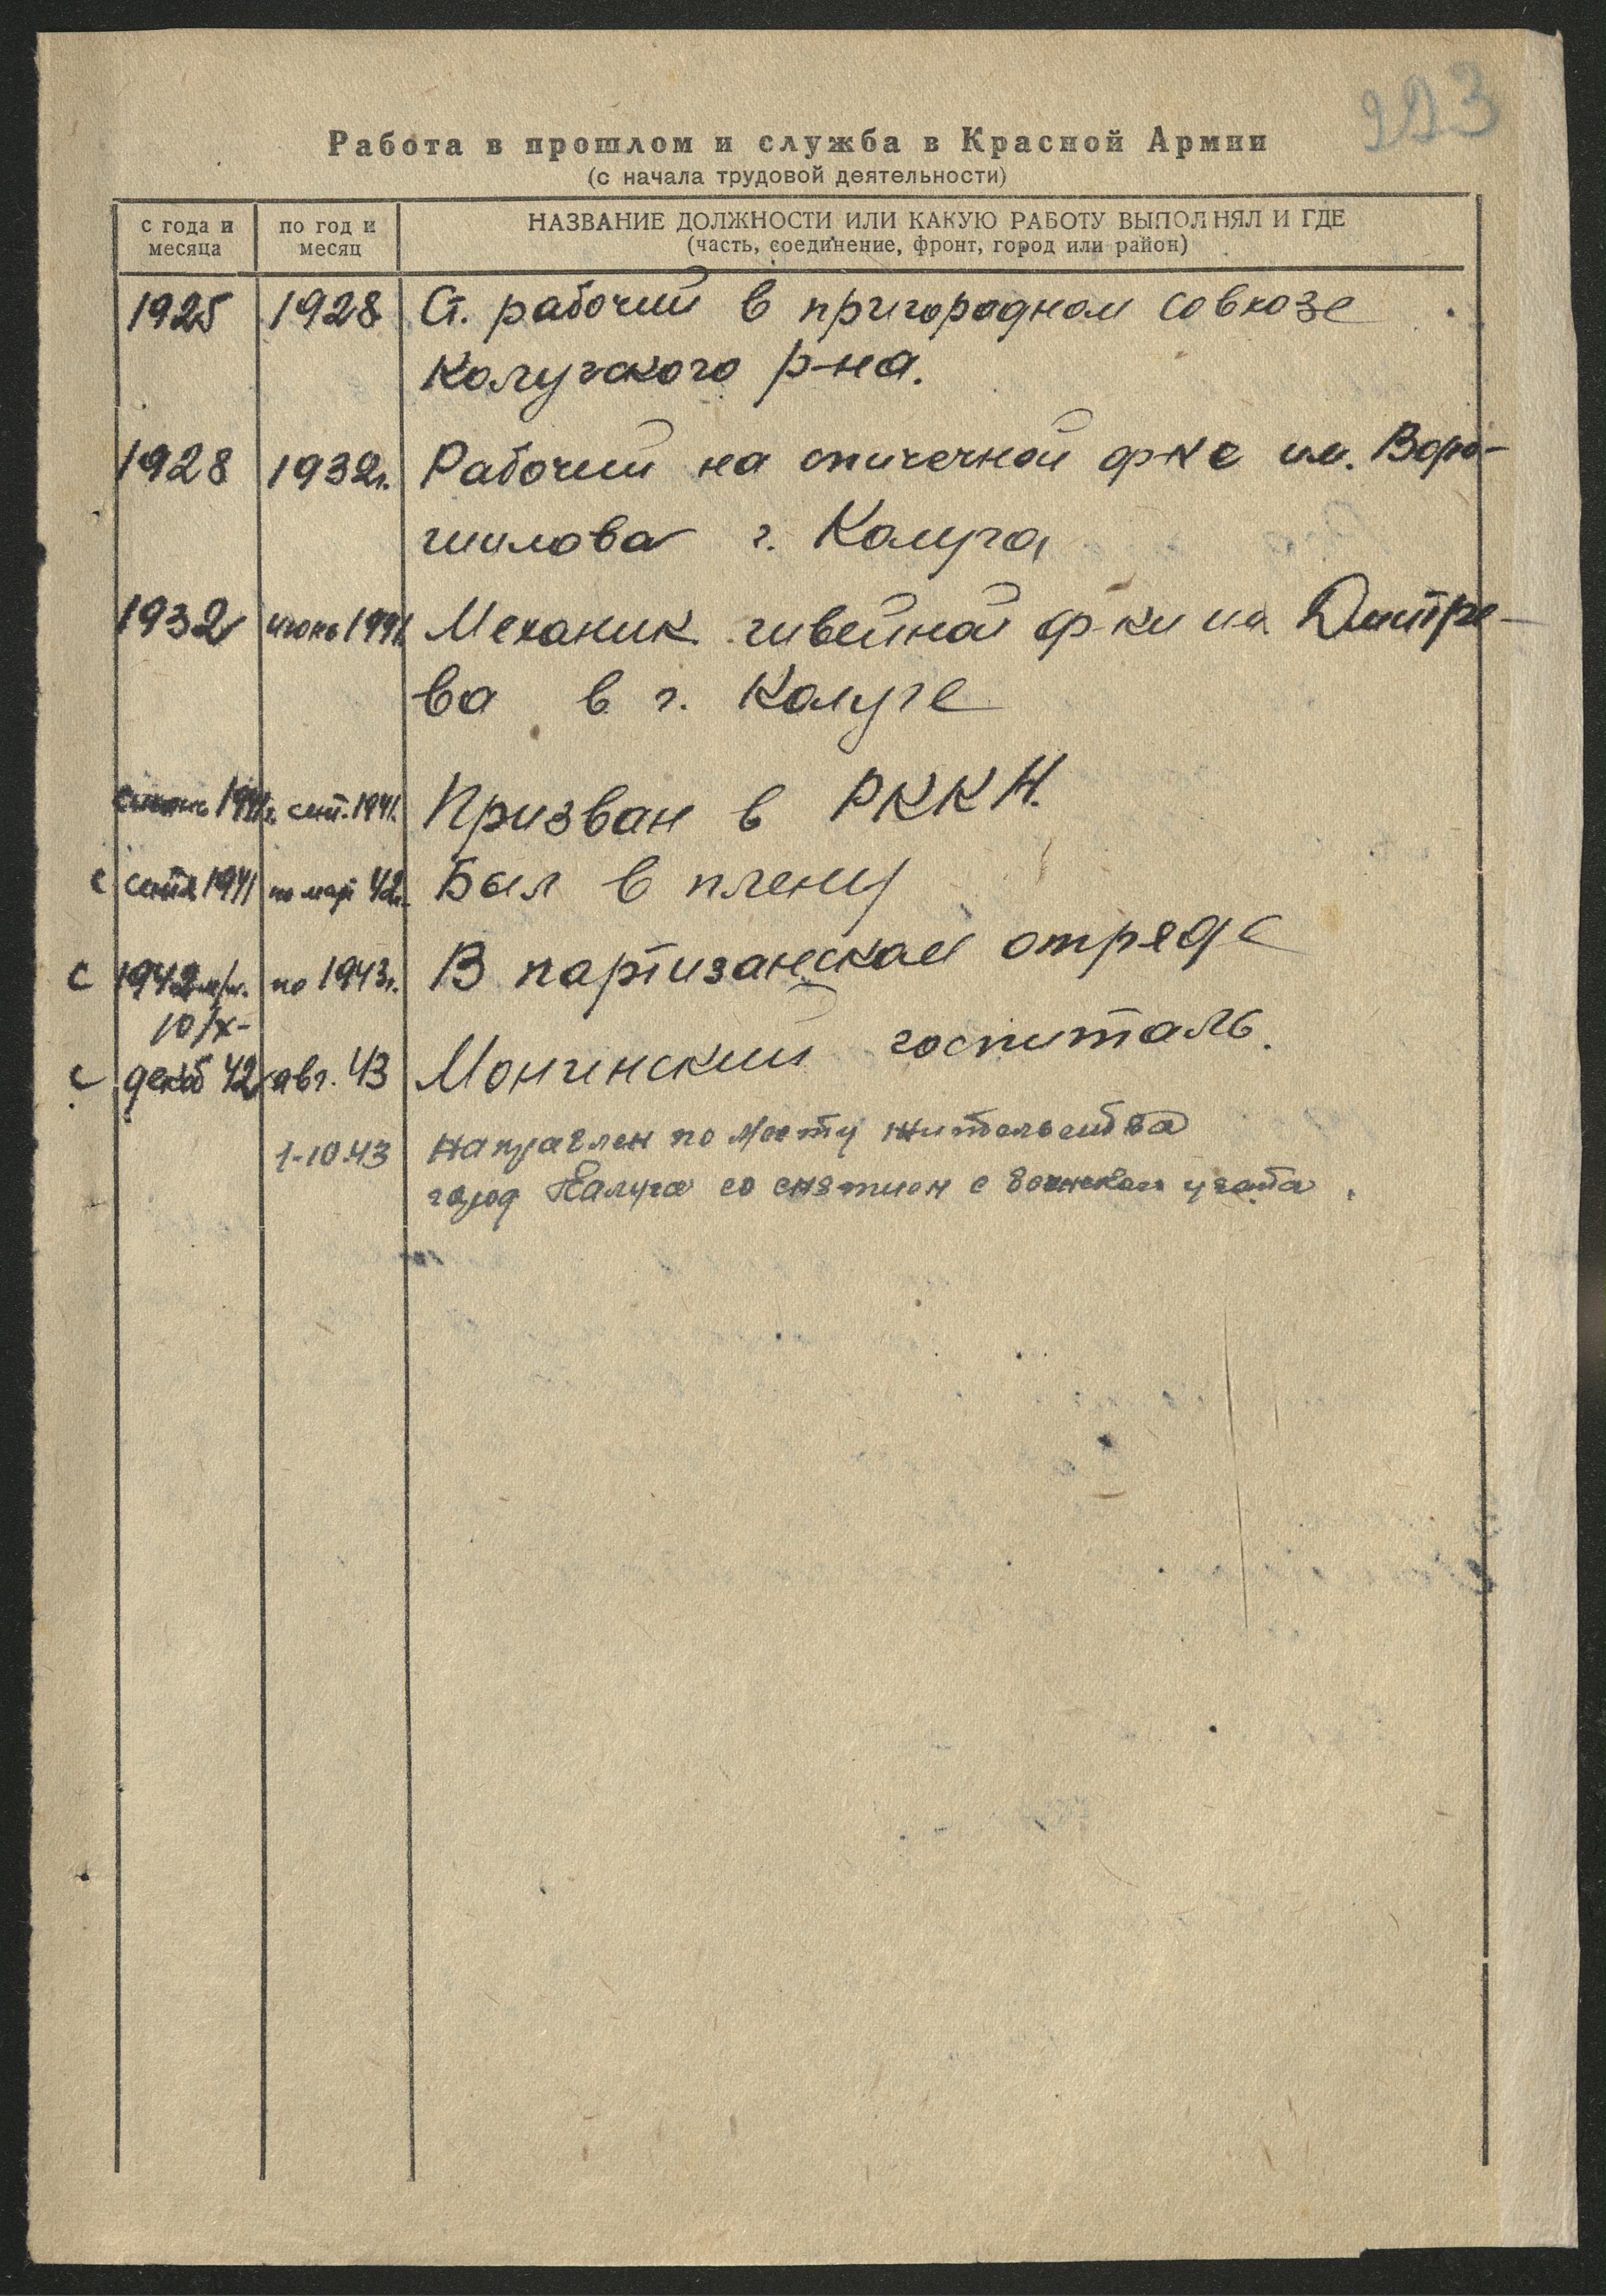 223
Работа в прошлом и служба в Красной Армии
(с начала трудовой деятельности)
с года и месяца
по год и месяц
НАЗВАНИЕ ДОЛЖНОСТИ ИЛИ КАКУЮ РАБОТУ ВЫПОЛНЯЛ И ГДЕ
(часть, соединение, фронт, город или район)
1925 1928 Ст. рабочий в пригородном совхозе
Калужского р-на.
1928 1932г. Рабочий на спичечной ф-ке им. Воро-
шилова г. Калуга
1932 июнь 1941 Механик швейной ф-ки им Дмитре-
ва в г. Калуге
июнь 1941г. сент. 1941. Призван в РККА.
с сентя 1941 по мар 42г. Был в плену
с 1942 м/м. по 1943г. В партизанском отряде
10/X-
с декаб 42 авг. 43 Мончинский госпиталь.
1-10.43 Направлен по месту жительства
город Калуга со снятием с воинского учета.